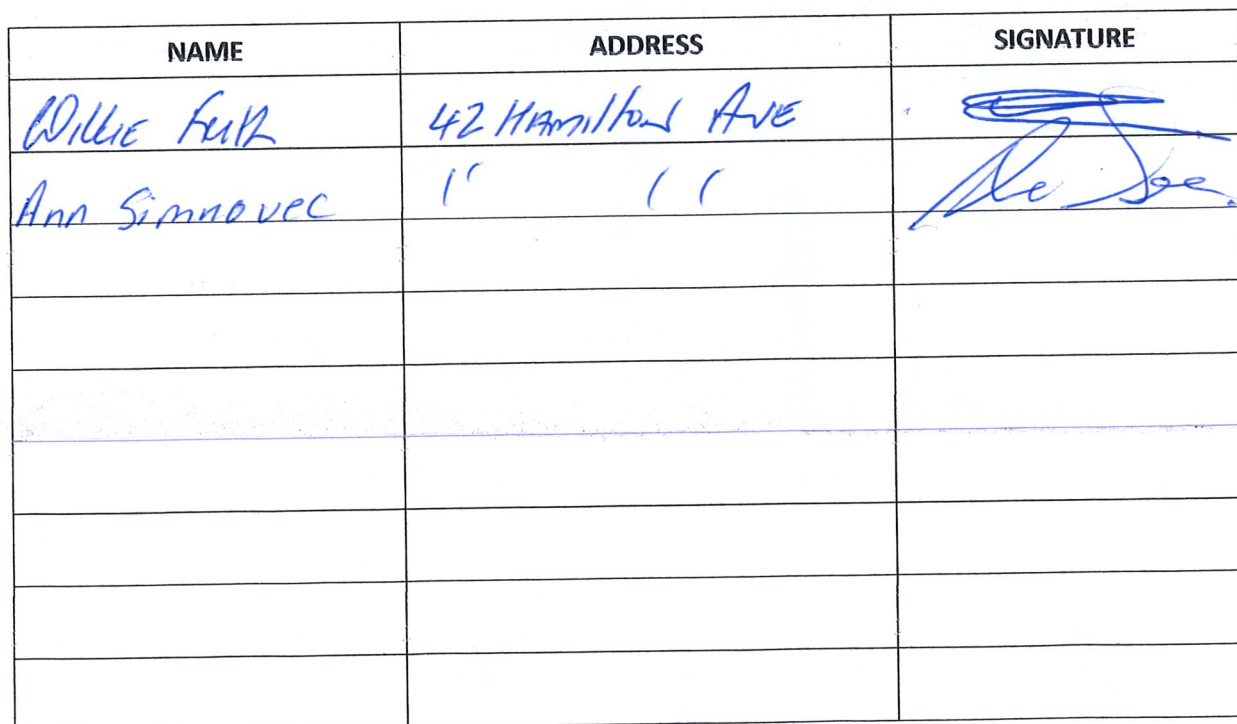 NAME ADDRESS SIGNATURE
Willie 42 Hamilton Ave
Ann Simnovec " "